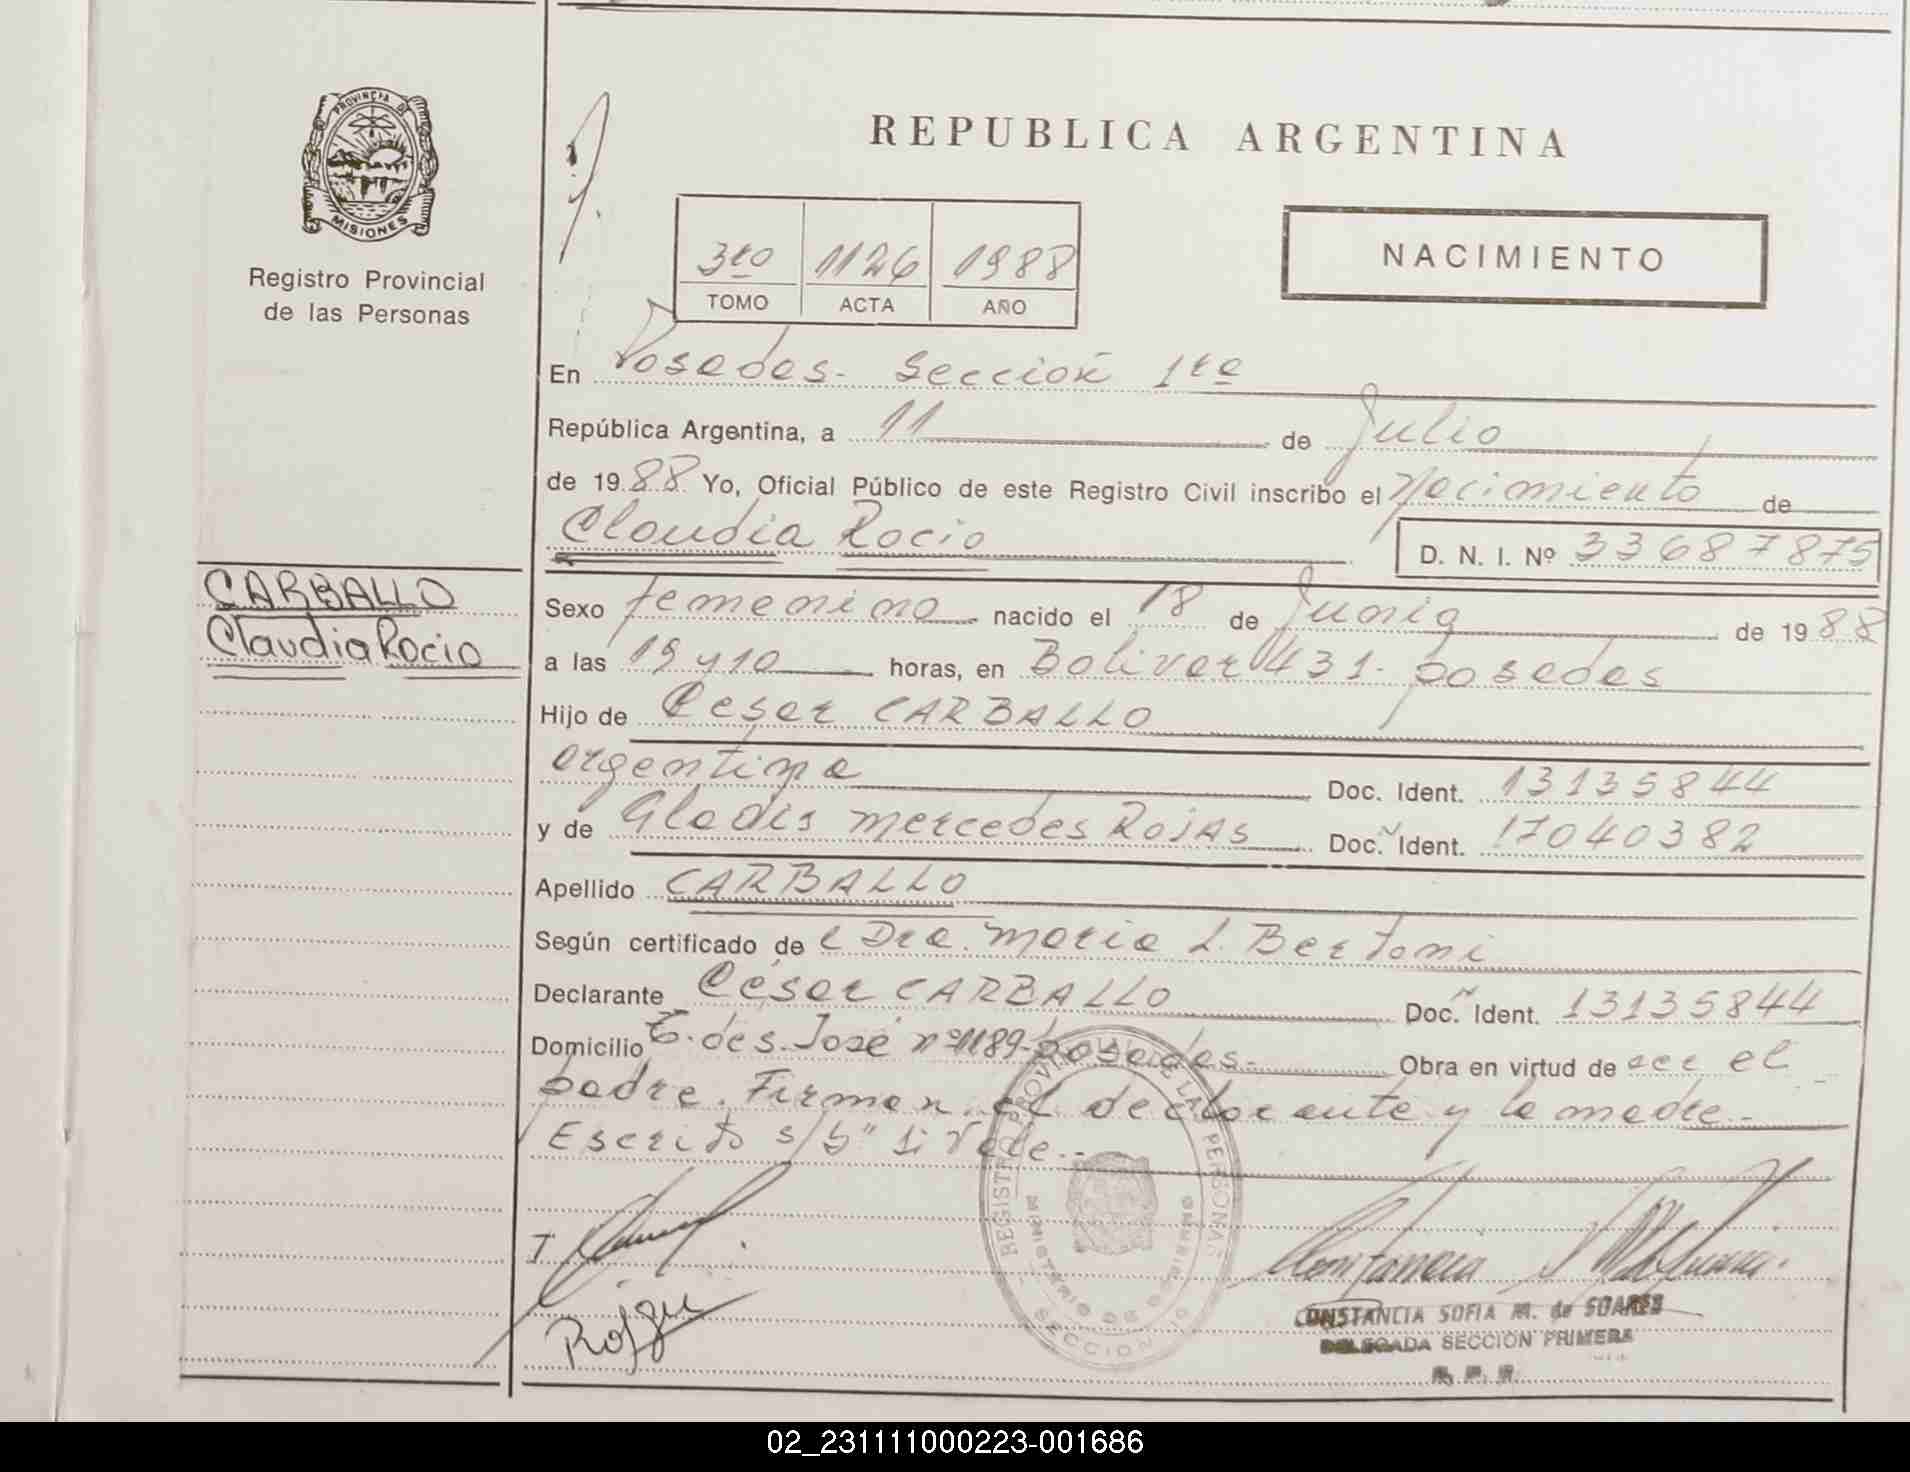 PROVINCIA DE
MISIONES
Registro Provincial
de las Personas
REPUBLICA ARGENTINA
3ro 1126 1988
TOMO ACTA AÑO
NACIMIENTO
En Posadas- Sección 1ra
República Argentina, a 11 de Julio
de 1988 Yo, Oficial Público de este Registro Civil inscribo el Nacimiento de
Claudia Rocio D. N. I. Nº 33687875
CARBALLO
Claudia Rocio
Sexo femenino nacido el 18 de Junio de 1988
a las 19 y 10 horas, en Bolivar 431- posadas
Hijo de César CARBALLO
argentina Doc. Ident. 13135844
y de Gladis mercedes Rojas Doc. Ident. 17040382
Apellido CARBALLO
Según certificado de Dra. maria L. Bertoni
Declarante César CARBALLO Doc. Ident. 13135844
Domicilio des. José nº 1189- posadas- Obra en virtud de ser el
padre. Firman el declarante y la madre-
Escrito s/b" si Vale.-
REGISTRO PROVINCIAL DE LAS PERSONAS
MINISTERIO DE GOBIERNO
SECCION 1º
Rojas
CONSTANCIA SOFIA M. de SOARES
DELEGADA SECCION PRIMERA
R. P. P.
02_231111000223-001686